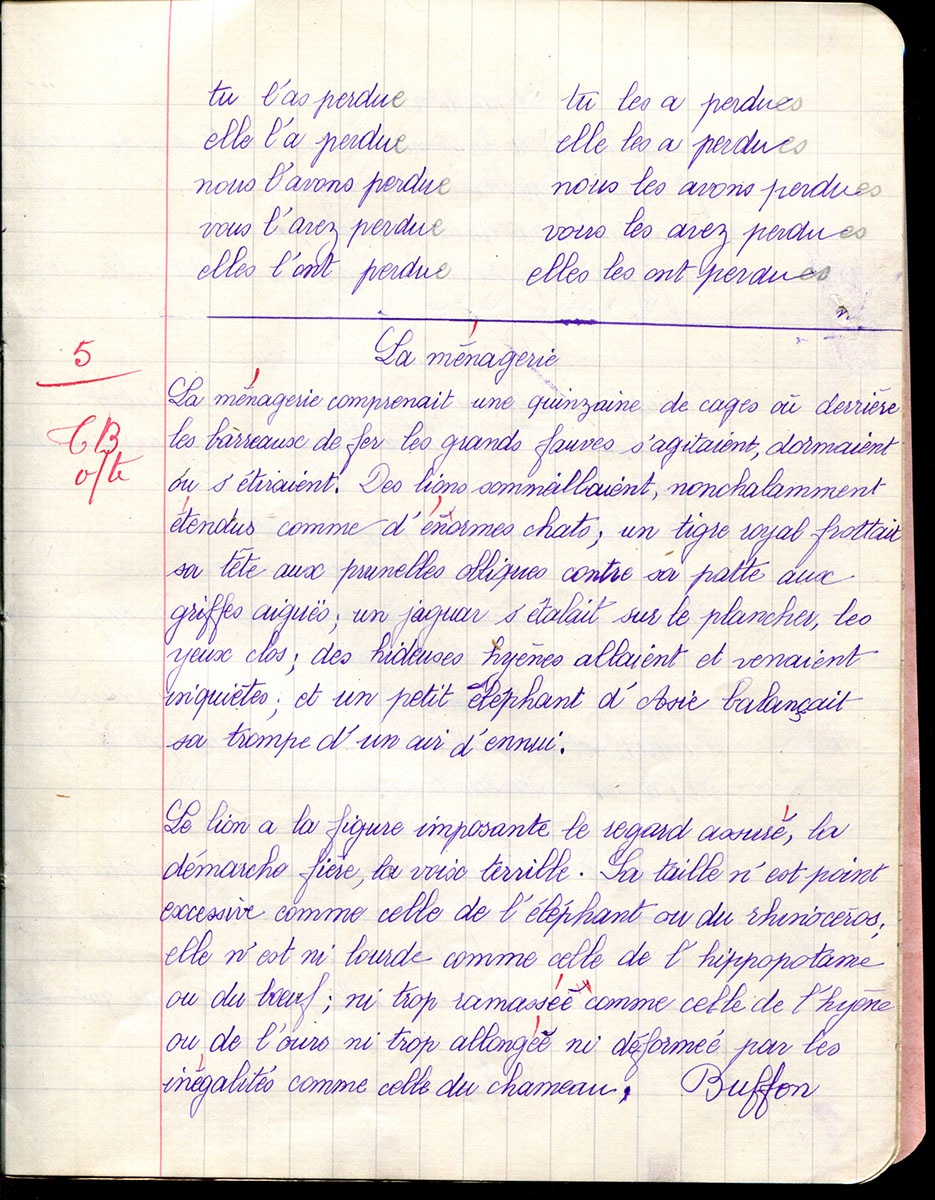 tu l'as perdue tu les a perdues
elle l'a perdue elle les a perdues
nous l'avons perdue nous les avons perdues
vous l'avez perdue vous les avez perdues
elles l'ont perdue elles les ont perdues
La ménagerie
5
La ménagerie comprenait une quinzaine de cages où derrière
les barreaux de fer les grands fauves s'agitaient, dormaient
ou s'étiraient. Des lions sommeillaient, nonchalamment
étendus comme d'énormes chats; un tigre royal frottait
sa tête aux prunelles obliques contre sa patte aux
griffes aiguës; un jaguar s'étalait sur le plancher, les
yeux clos; des hideuses hyènes allaient et venaient
inquiètes; et un petit éléphant d'Asie balançait
sa trompe d'un air d'ennui.
Le lion a la figure imposante le regard assuré, la
démarche fière, la voix terrible. Sa taille n'est point
excessive comme celle de l'éléphant ou du rhinocéros;
elle n'est ni lourde comme celle de l'hippopotame
ou du bœuf; ni trop ramassée comme celle de l'hyène
ou de l'ours ni trop allongée ni déformée par les
inégalités comme celle du chameau. Buffon